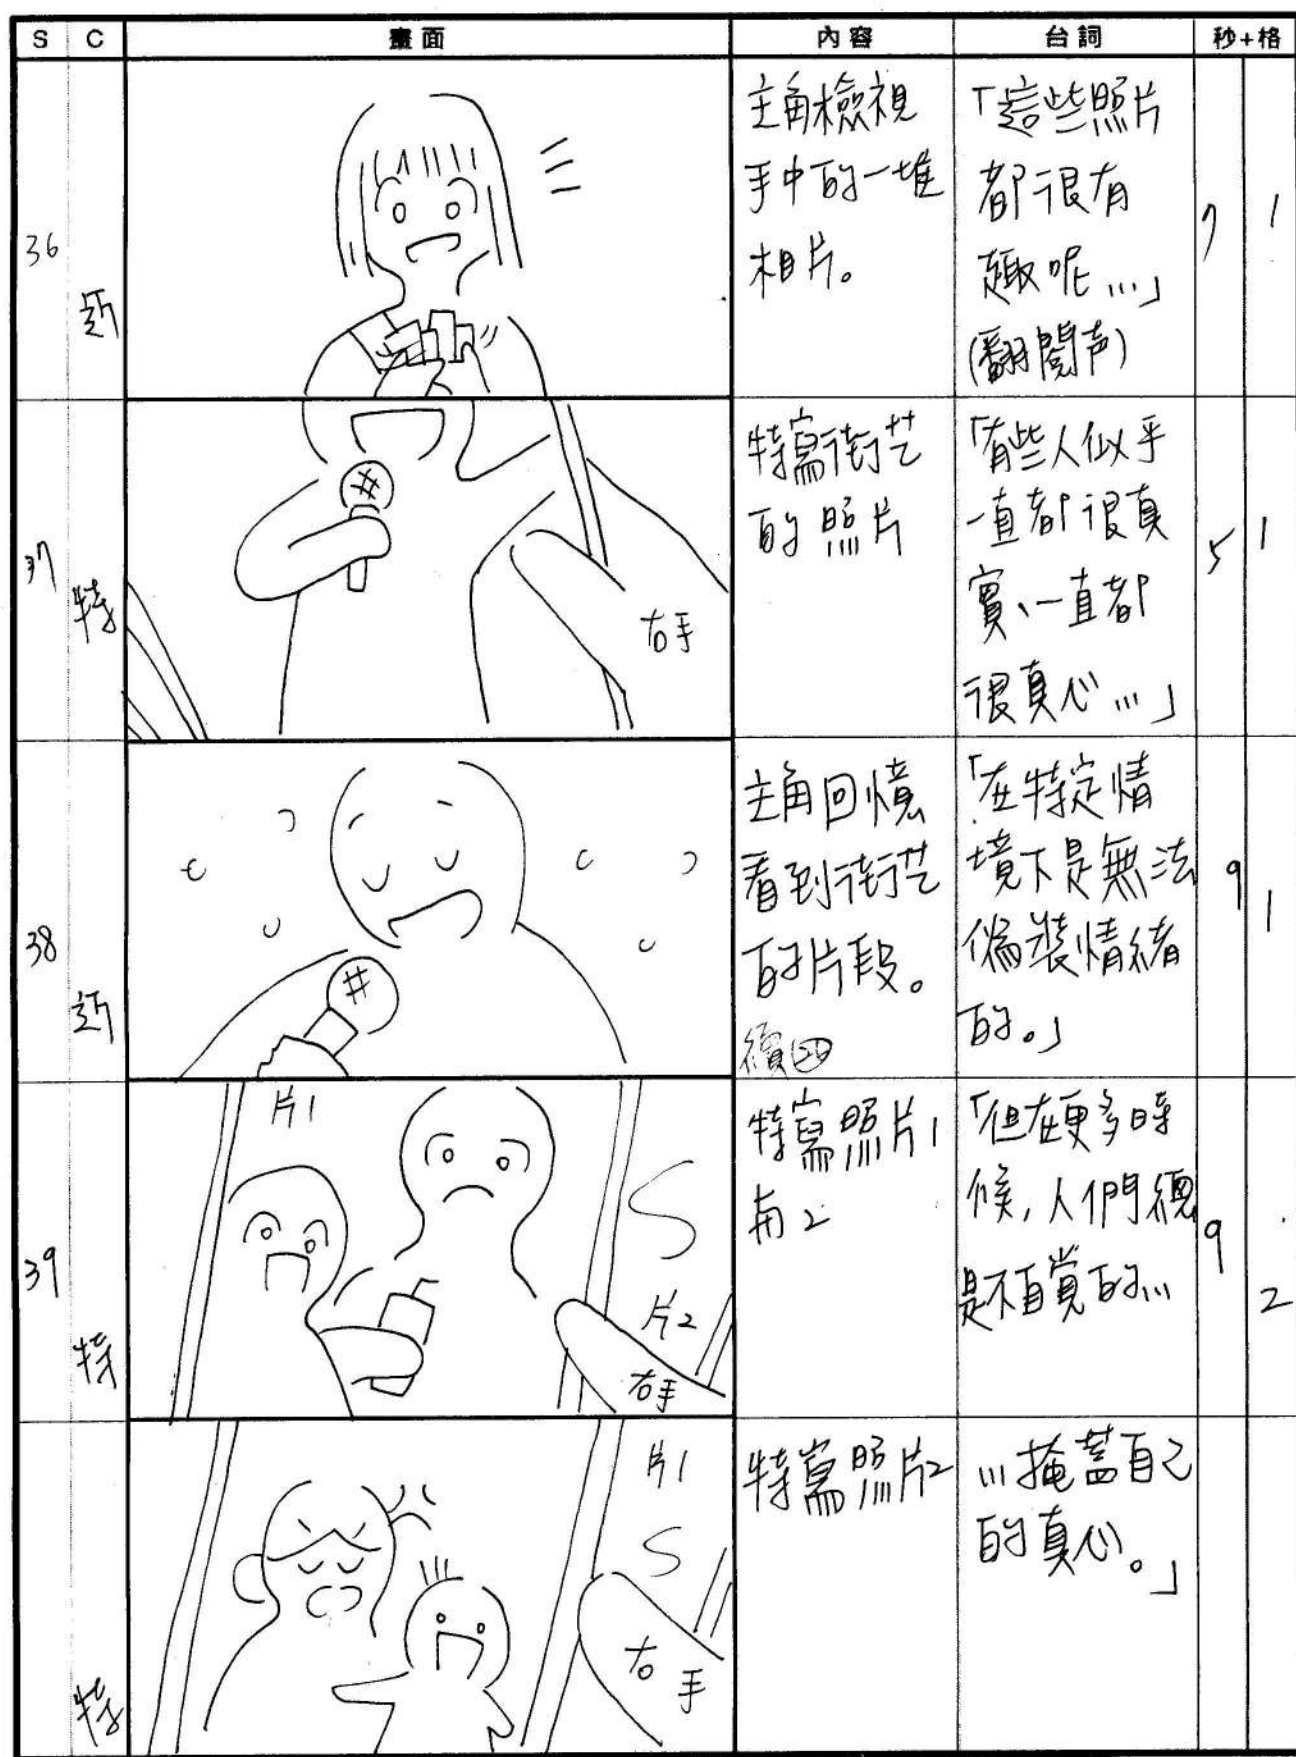 S C 畫面 內容 台詞 秒+格
36
近
主角檢視
手中的一堆
相片。
「這些照片
都很有
趣呢…」
(翻閱声)
7
1
37
特
右手
特寫街艺
的照片
「有些人似乎
一直都很真
實、一直都
很真心…」
5
1
38
近
主角回憶
看到街艺
的片段。
「在特定情
境下是無法
偽裝情緒
的。」
9
1
39
特
片1
片2
右手
特寫照片1
「但在更多時
候,人們總
是不自覺的…
9
2
特
片1
右手
特寫照片2
…掩蓋自己
的真心。」